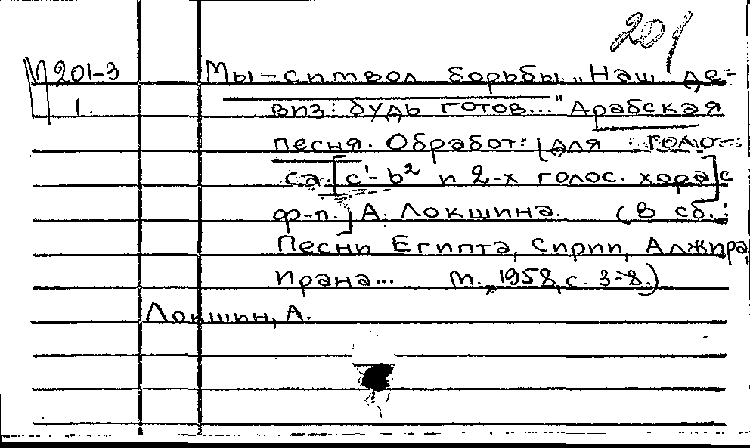 201
М 201-3 Мы – символ борьбы. „Наш де-
1. виз: будь готов..." Арабская
песня. Обработ: [для голо-
са [c¹-b² и 2-х голос. хора] с
ф-п.] А. Локшина. (В сб.:
Песни Египта, Сирии, Алжира,
Ирана... М., 1958, с. 3-8.)
Локшин, А.